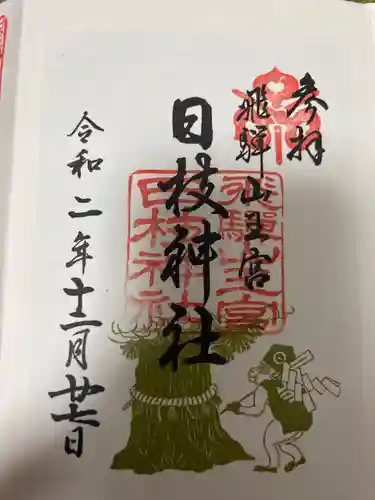 参拝
飛騨山王宮
日枝神社
令和二年十二月廿七日
飛騨山王宮
日枝神社